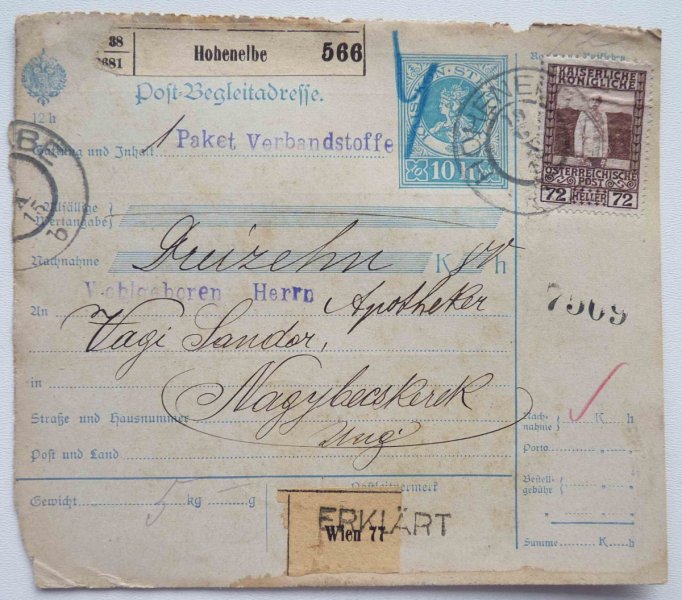 38
2681
Hohenelbe 566
12 h
Post-Begleitadresse.
10 h
KAISERLICHE
KÖNIGLICHE
ÖSTERREICHISCHE
POST
72 HELLER 72
HOHENE
Gattung und Inhalt 1 Paket Verbandstoffe
Allfällige
Wertangabe
Nachnahme Dreizehn K h
Wohlgeboren Herrn Apotheker
7909
An Vagi Sandor,
in Nagybecskerek
Straße und Hausnummer
Ung
Post und Land
Nach-
nahme K h
Porto
Bestell-
gebühr
Summe K h
Gewicht 5 kg g
ERKLÄRT
Wien 77